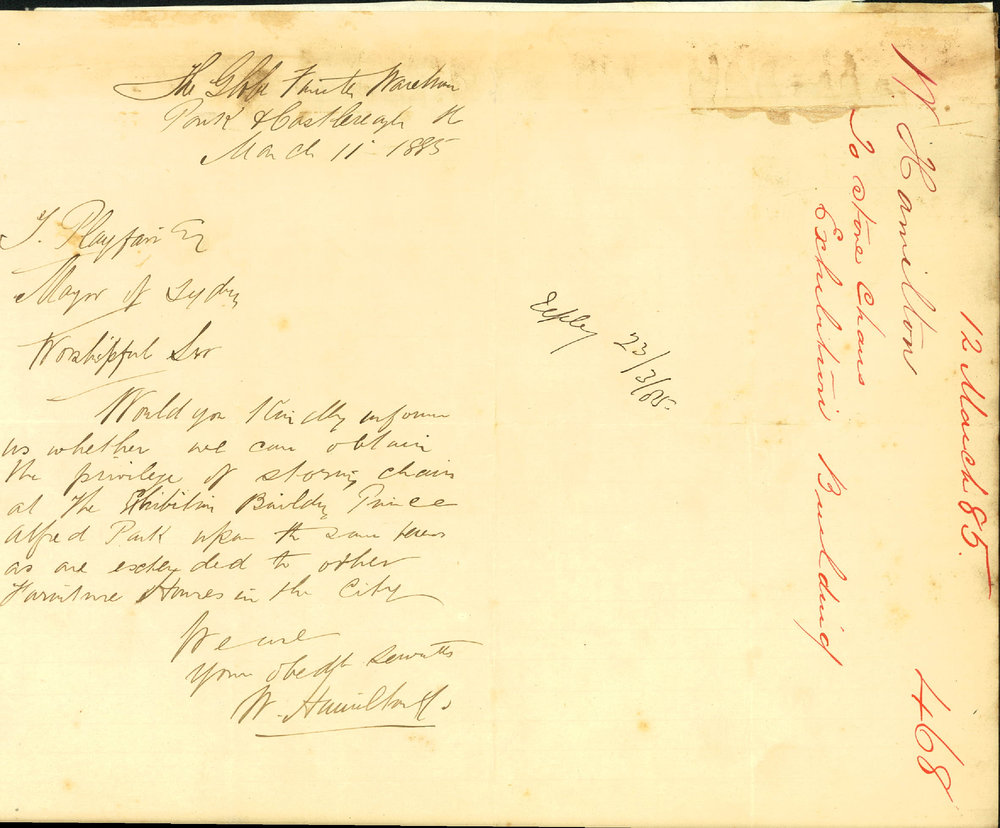 The Globe Furniture Warehouse
York & Castlereagh St
March 11 1885
T. Playfair Esq
Mayor of Sydney
Worshipful Sir
Would you kindly inform
us whether we can obtain
the privilege of storing chairs
at the Exhibition Building Prince
Alfred Park upon the same terms
as are extended to other
Furniture Houses in the City
We are
Your obedt servants
W. Hamilton & Co
23/3/85
W Hamilton
To store Chairs
Exhibition Building
12 March 85.
468